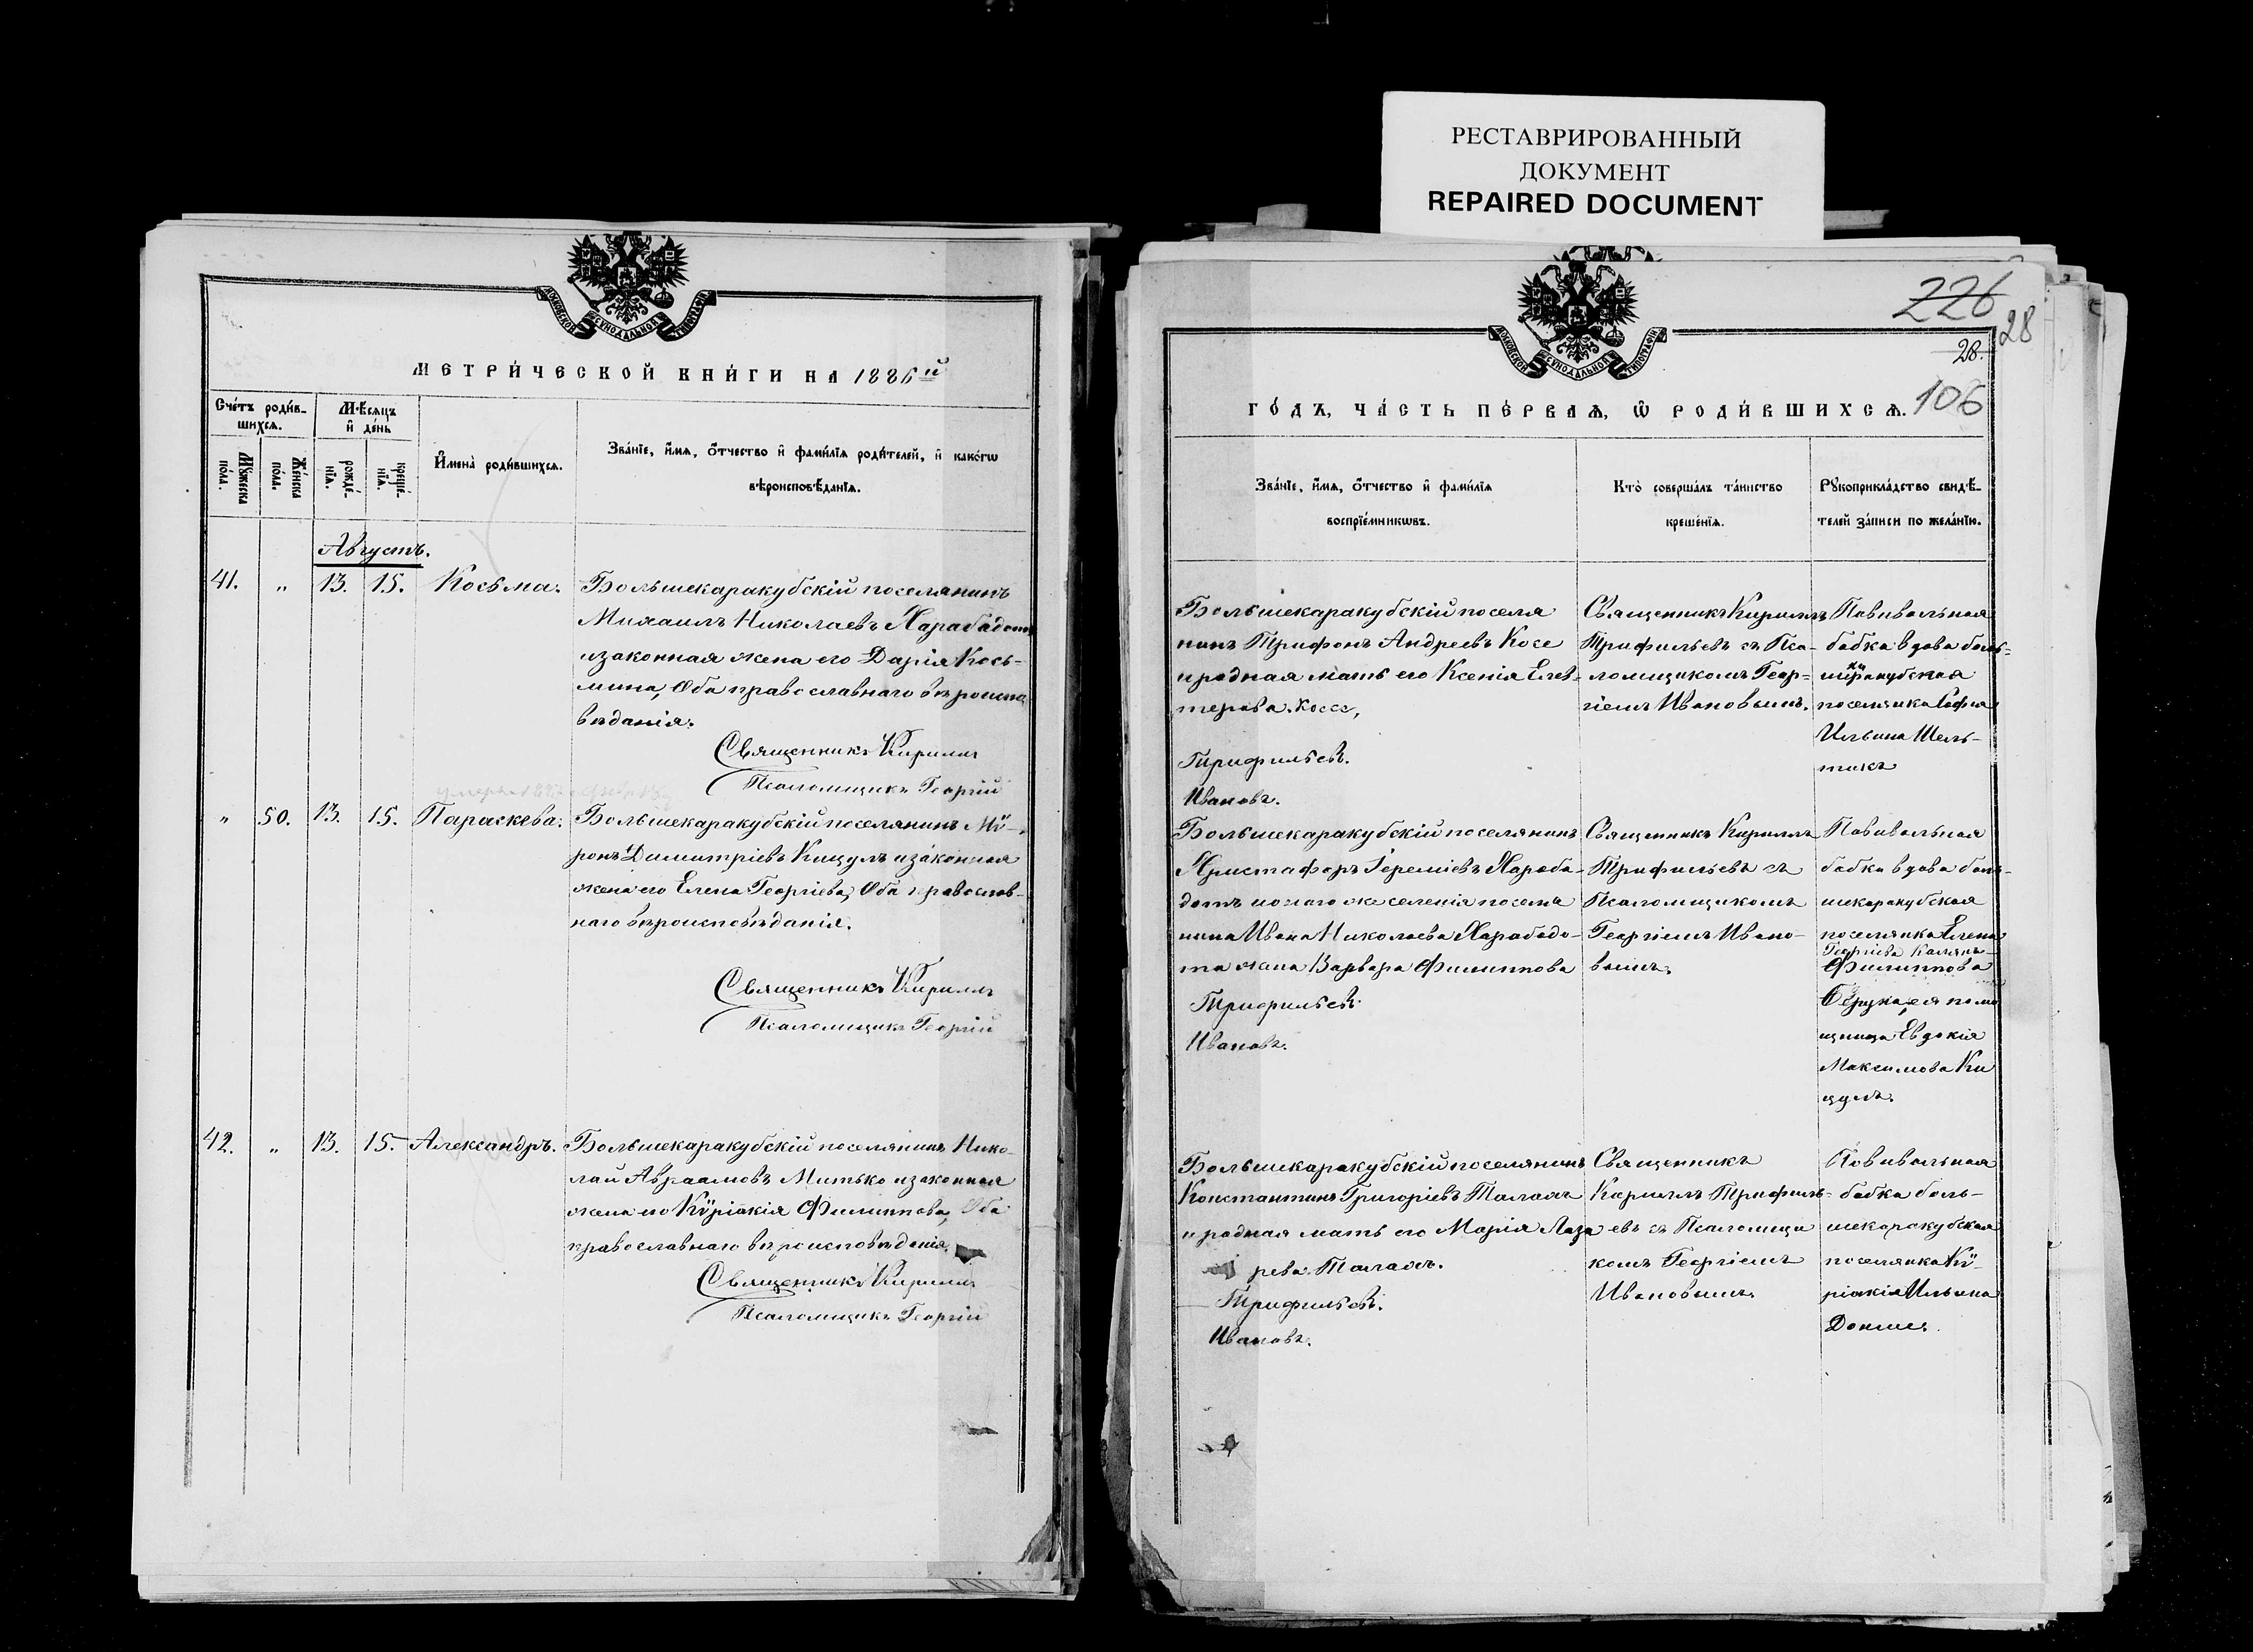 РЕСТАВРИРОВАННЫЙ
ДОКУМЕНТ
REPAIRED DOCUMENT
МОСКОВСКОЙ СѴНОДАЛЬНОЙ ТИПОГРАФІИ
МЕТРИ́ЧЕСКОЙ КНИ́ГИ НА 1886й
Сче́тъ роди́в-
шихсѧ.
Мꙋ́жеска
по́ла.
Же́нска
по́ла.
Мѣ́сѧцъ
и҆ де́нь
рожде́-
нїѧ.
креще́-
нїѧ.
И҆мена̀ роди́вшихсѧ.
Зва́нїе, и҆́мѧ, ѻ҆́тчество и҆ фами́лїѧ роди́телей, и҆ како́гѡ
вѣроисповѣ́данїѧ.
Августъ.
41. " 13. 15. Косьма.
Большекаракубскій поселянинъ
Михаилъ Николаевъ Харабадотъ
и законная жена его Дарія Кось-
мина, Оба православнаго вѣроиспо
вѣданія.
Священникъ Кириллъ
Псаломщикъ Георгій
" 50. 13. 15. Параскева.
Большекаракубскій поселянинъ Мѵ-
ронъ Димитріевъ Кицулъ и законная
жена его Елена Георгіева, Оба православ-
наго вѣроисповѣданія.
Священникъ Кириллъ
Псаломщикъ Георгій
42. " 13. 15. Александръ.
Большекаракубскій поселянинъ Нико-
лай Авраамовъ Митько и законная
жена его Кѵріакія Филиппова, Оба
православнаго вѣроисповѣданія.
Священникъ Кириллъ
Псаломщикъ Георгій
226
28
28.
106
МОСКОВСКОЙ СѴНОДАЛЬНОЙ ТИПОГРАФІИ
ГО́ДЪ, ЧА́СТЬ ПЕ́РВАѦ, Ѽ РОДИ́ВШИХСѦ.
Зва́нїе, и҆́мѧ, ѻ҆́тчество и҆ фами́лїѧ
воспрїе́мникѡвъ.
Кто̀ соверша́лъ та́инство
креще́нїѧ.
Рꙋкоприкла́дство свидѣ́-
телей за́писи по жела́нїю.
Большекаракубскій поселя
нинъ Трифонъ Андреевъ Косе
и родная мать его Ксенія Елев-
терова. Коссе,
Трифильевъ.
Ивановъ.
Священникъ Кириллъ
Трифильевъ съ Пса-
ломщикомъ Геор-
гіемъ Ивановымъ.
Повивальная
бабка вдова боль-
поселянка Софія
Ильина Шель-
Большекаракубскій поселянинъ
Христафоръ Іереміевъ Хараба-
дотъ и онаго же селенія поселя
нина Ивана Николаева Харабадо-
та жена Варвара Филиппова
Трифильевъ
Ивановъ.
Священникъ Кириллъ
Трифильевъ съ
Псаломщикомъ
Георгіемъ Ивано-
вымъ.
Повивальная
бабка вдова боль-
шекаракубская
поселянка Елена
Георгіева
Филиппова
ея помо
щница Евдокія
Максимова Ки
цулъ.
Большекаракубскій поселянинъ
Константинъ Григоріевъ Талахъ
и родная мать его Марія Лаза
рева. Талахъ.
Трифильевъ.
Ивановъ.
Священникъ
Кириллъ Трифиль-
евъ съ Псаломщи
комъ Георгіемъ
Ивановымъ.
Повивальная
бабка боль-
шекаракубская
поселянка Кѵ-
ріакія Ильина